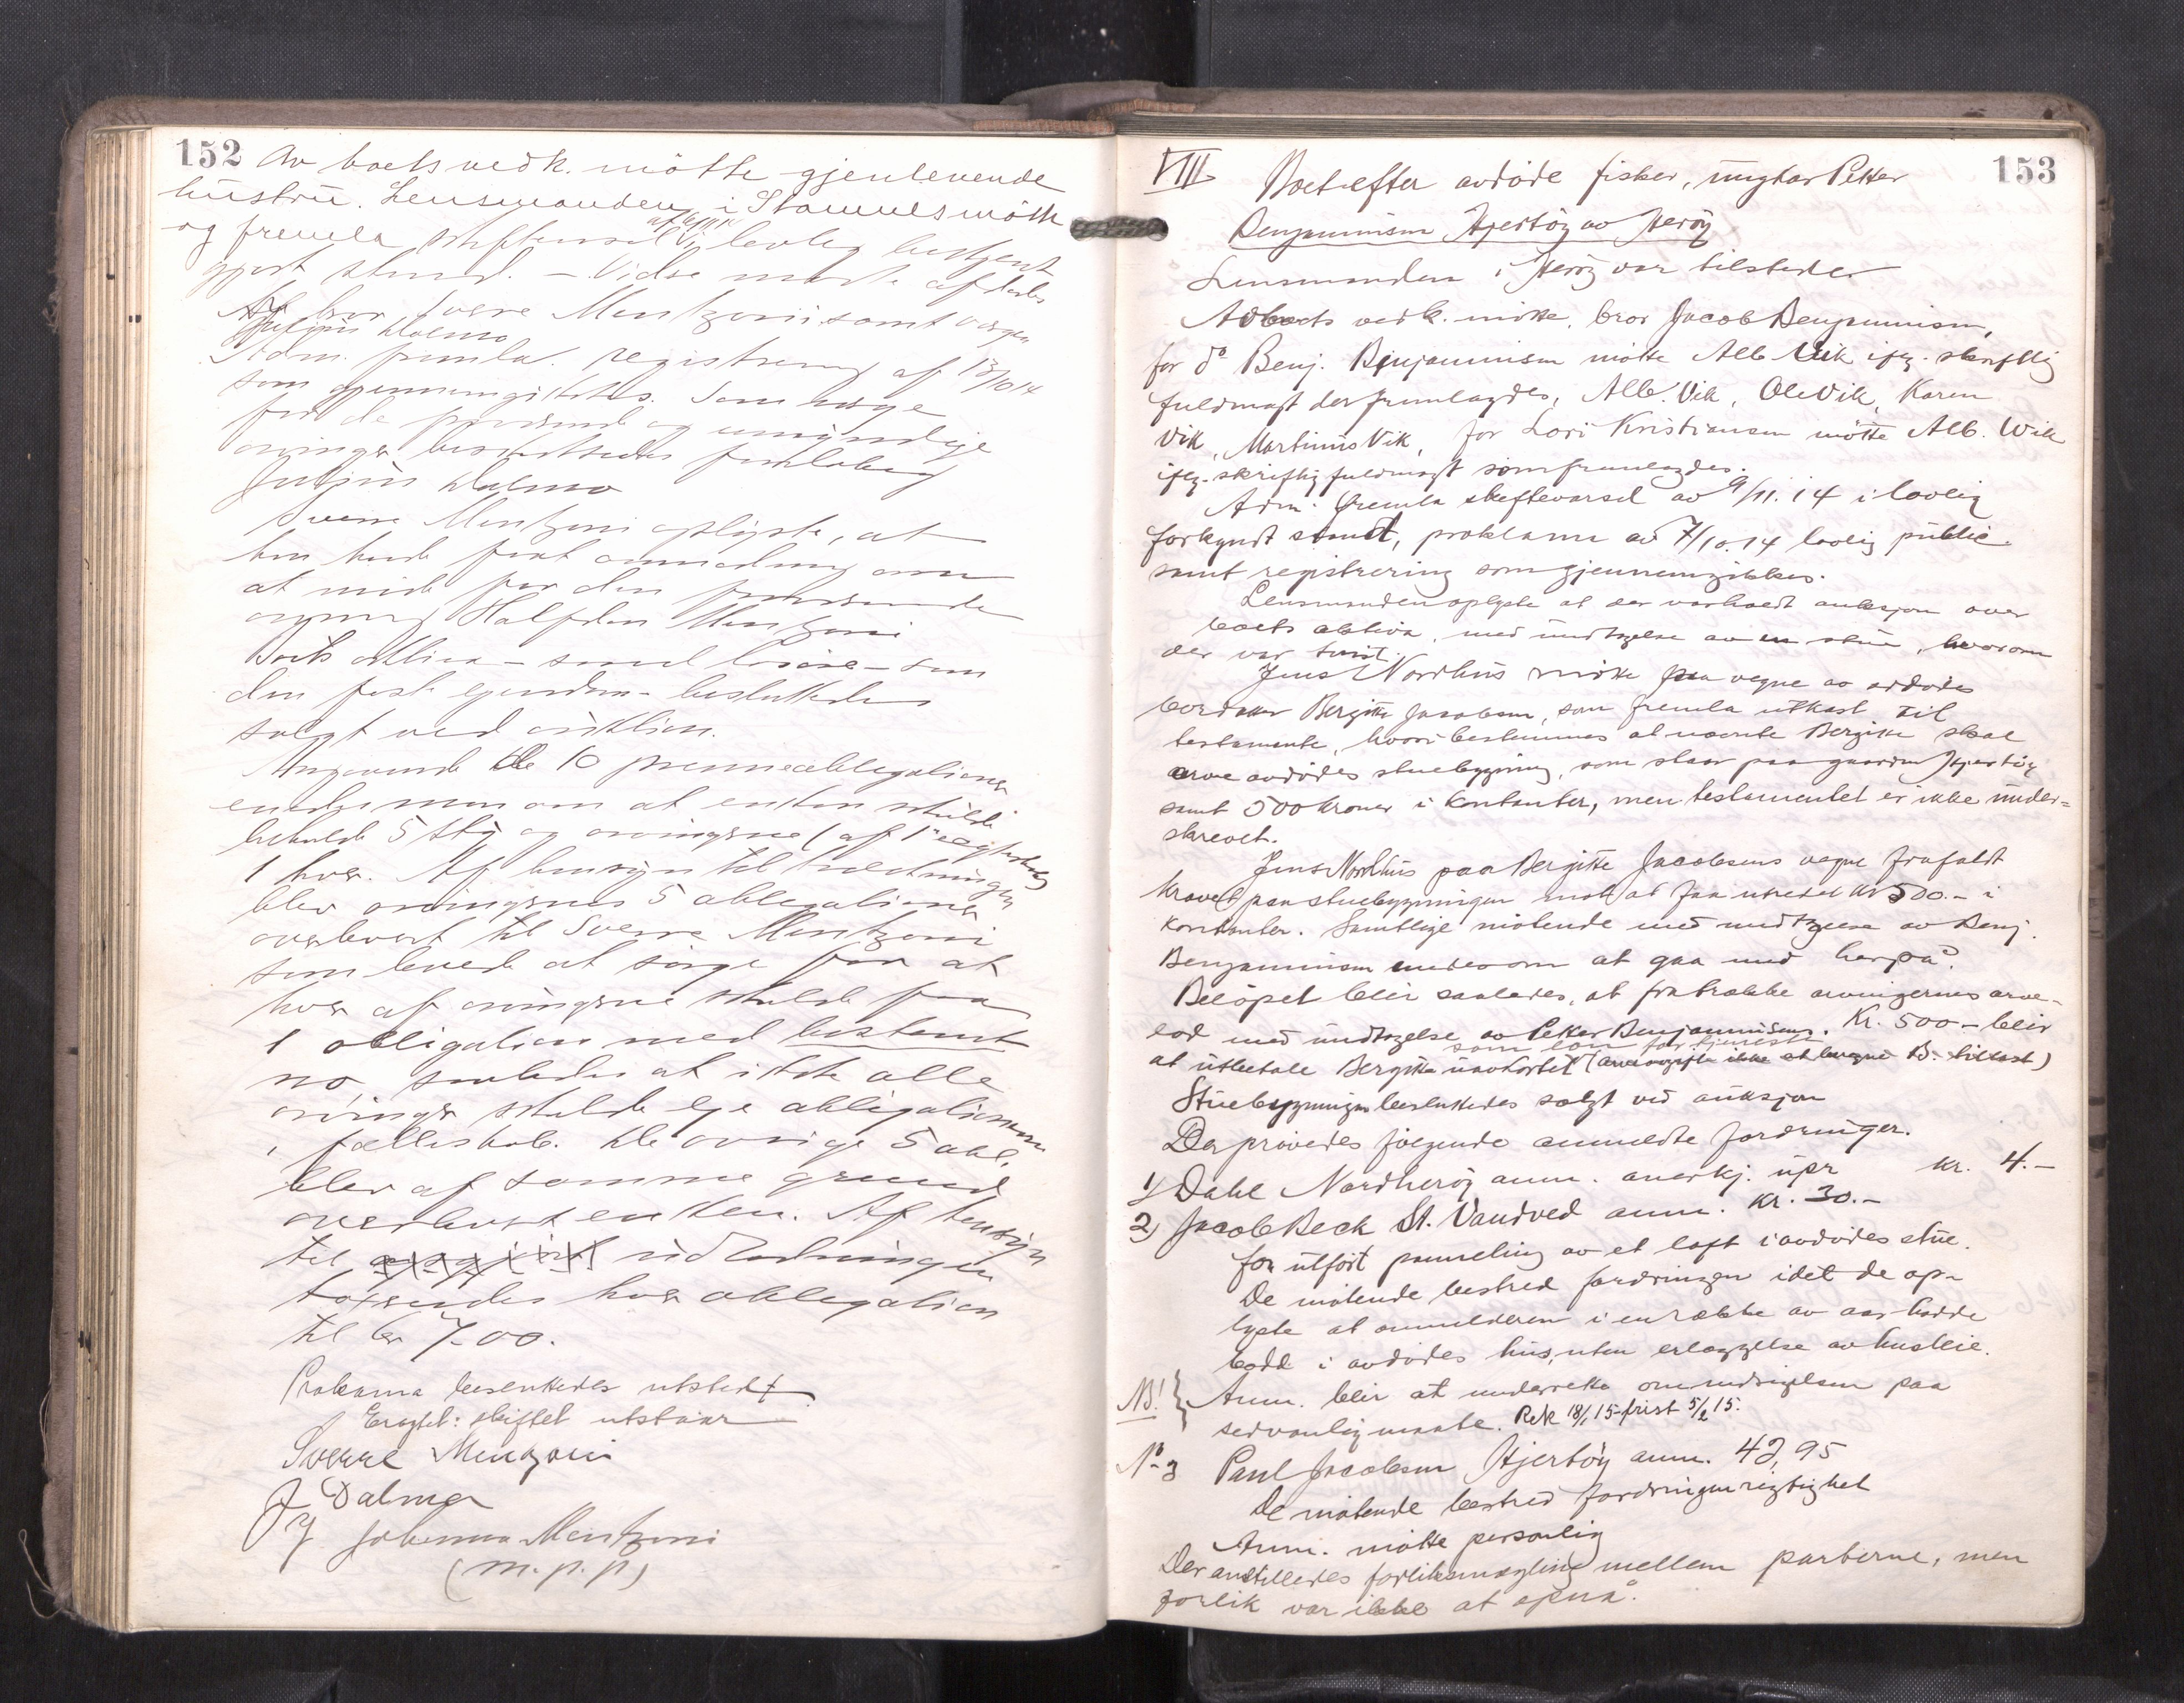 152
Av boets vedk. mötte gjenlevende
hustru. Lensmanden i Stamnes mötte
og fremla skiftevarsel lovlig bekjent
gjort stevnd. – Videre mötte afdødes
bror Sverre Mentzoni samt verge
Julius Dalmo
Adm. fremla registrering af 13/10 14
som gjennemgikkes. Som verge
for de fraværende og umyndige
arvinger beskikkedes foreløbig
Julius Dalmo
Sverre Mentzoni oplyste, at
han hadde faat anmodning om
at møde for den fraværende
arving Halfdan Mentzoni
Boets aktiva – saavel løsøre – som
den faste eiendom – besluttedes
solgt ved auktion.
Angaaende de 10 premieobligationer
enedes man om at enken skulde
beholde 5 stk og arvingerne (af 1ste egteskab)
1 hver. Af hensyn til trækningen
blev arvingernes 5 obligationer
overlevert til Sverre Mentzoni
som lovede at sörge for at
hver af arvingerne skulde faa
1 obligation med bestemt
no, saaledes at ikke alle
arvinger skulde eje obligationerne
i fællesskab. De øvrige 5 obl.
blev af samme grund
overlevert enken. Af hensyn
til udlodningen
taxeredes hver obligation
til kr 7-00.
Proklama besluttedes utstedt
Eragtet: skiftet utstaar
Sverre Mentzoni
J Dalmo
Johanna Mentzoni
(m. p. p)
153
VIII Boet efter avdöde fisker, ungkar Petter
Benjaminsen Hjertöy av Heröy
Lensmanden i Heröy var tilstede
Av boets vedk. mötte, bror Jacob Benjaminsen,
for do Benj. Benjaminsen mötte Alb Vik ifg. skriftlig
fuldmagt der fremlagdes, Alb. Vik, Ole Vik, Karen
Vik, Martinus Vik, for Lovi Kristiansen mötte Alb. Wik
ifg. skriftlig fuldmagt som fremlagdes.
Adm. fremla skiftevarsel av 9/11. 14 i lovlig
forkyndt stand, proklama av 7/10. 14 lovlig public.
samt registrering som gjennemgikkes.
Lensmanden oplyste at der var holdt auksjon over
boets aktiva, med undtagelse av en stue, hvorom
der var tvist.
Jens Nordhus mötte paa vegne av avdödes
Bergitte Jacobsen, som fremla utkast til
testamente, hvori bestemmes at nævnte Bergitte skal
arve avdödes stuebygning, som staar paa gaarden Hjertöy
samt 500 kroner i kontanter, men testamentet er ikke under-
skrevet.
Jens Nordhus paa Bergitte Jacobsens vegne frafaldt
kravet paa stuebygningen mot at faa utredet kr 500.- i
kontanter. Samtlige mötende med undtagelse av Benj.
Benjaminsen enedes om at gaa med herpaa.
Belöpet blir saaledes, at fratrække arvingernes arve-
lod med undtagelse av Petter Benjaminsens. Kr. 500 – blir
som lön for tjeneste
at utbetale Bergitte uavkortet (arveavgift ikke at beregne B. tilkast)
Stuebygningen besluttedes solgt ved auksjon
Der prövedes fölgende anmeldte fordringer.
1) Dahl Nordheröy anm. anerkj. upr kr. 4.–
2) Jacob Beck St. Vandved anm. Kr. 30.–
for utfört paneling av et loft i avdödes stue.
De mötende bestred fordringen idet de op-
lyste at anmelderen i en række av aar hadde
bodd i avdödes hus, uten erlæggelse av husleie.
NB! } Anm. blir at underrette om indsigelsen paa
sedvanlig maate. Rek 18/1 15 – frist 5/2 15.
No 3 Paul Jacobsen Hjertöy anm. 42,95
De mötende bestred fordringens rigtighet
Anm. mötte personlig
Der anstilledes forliksmægling mellem parterne, men
forlik var ikke at opnå.